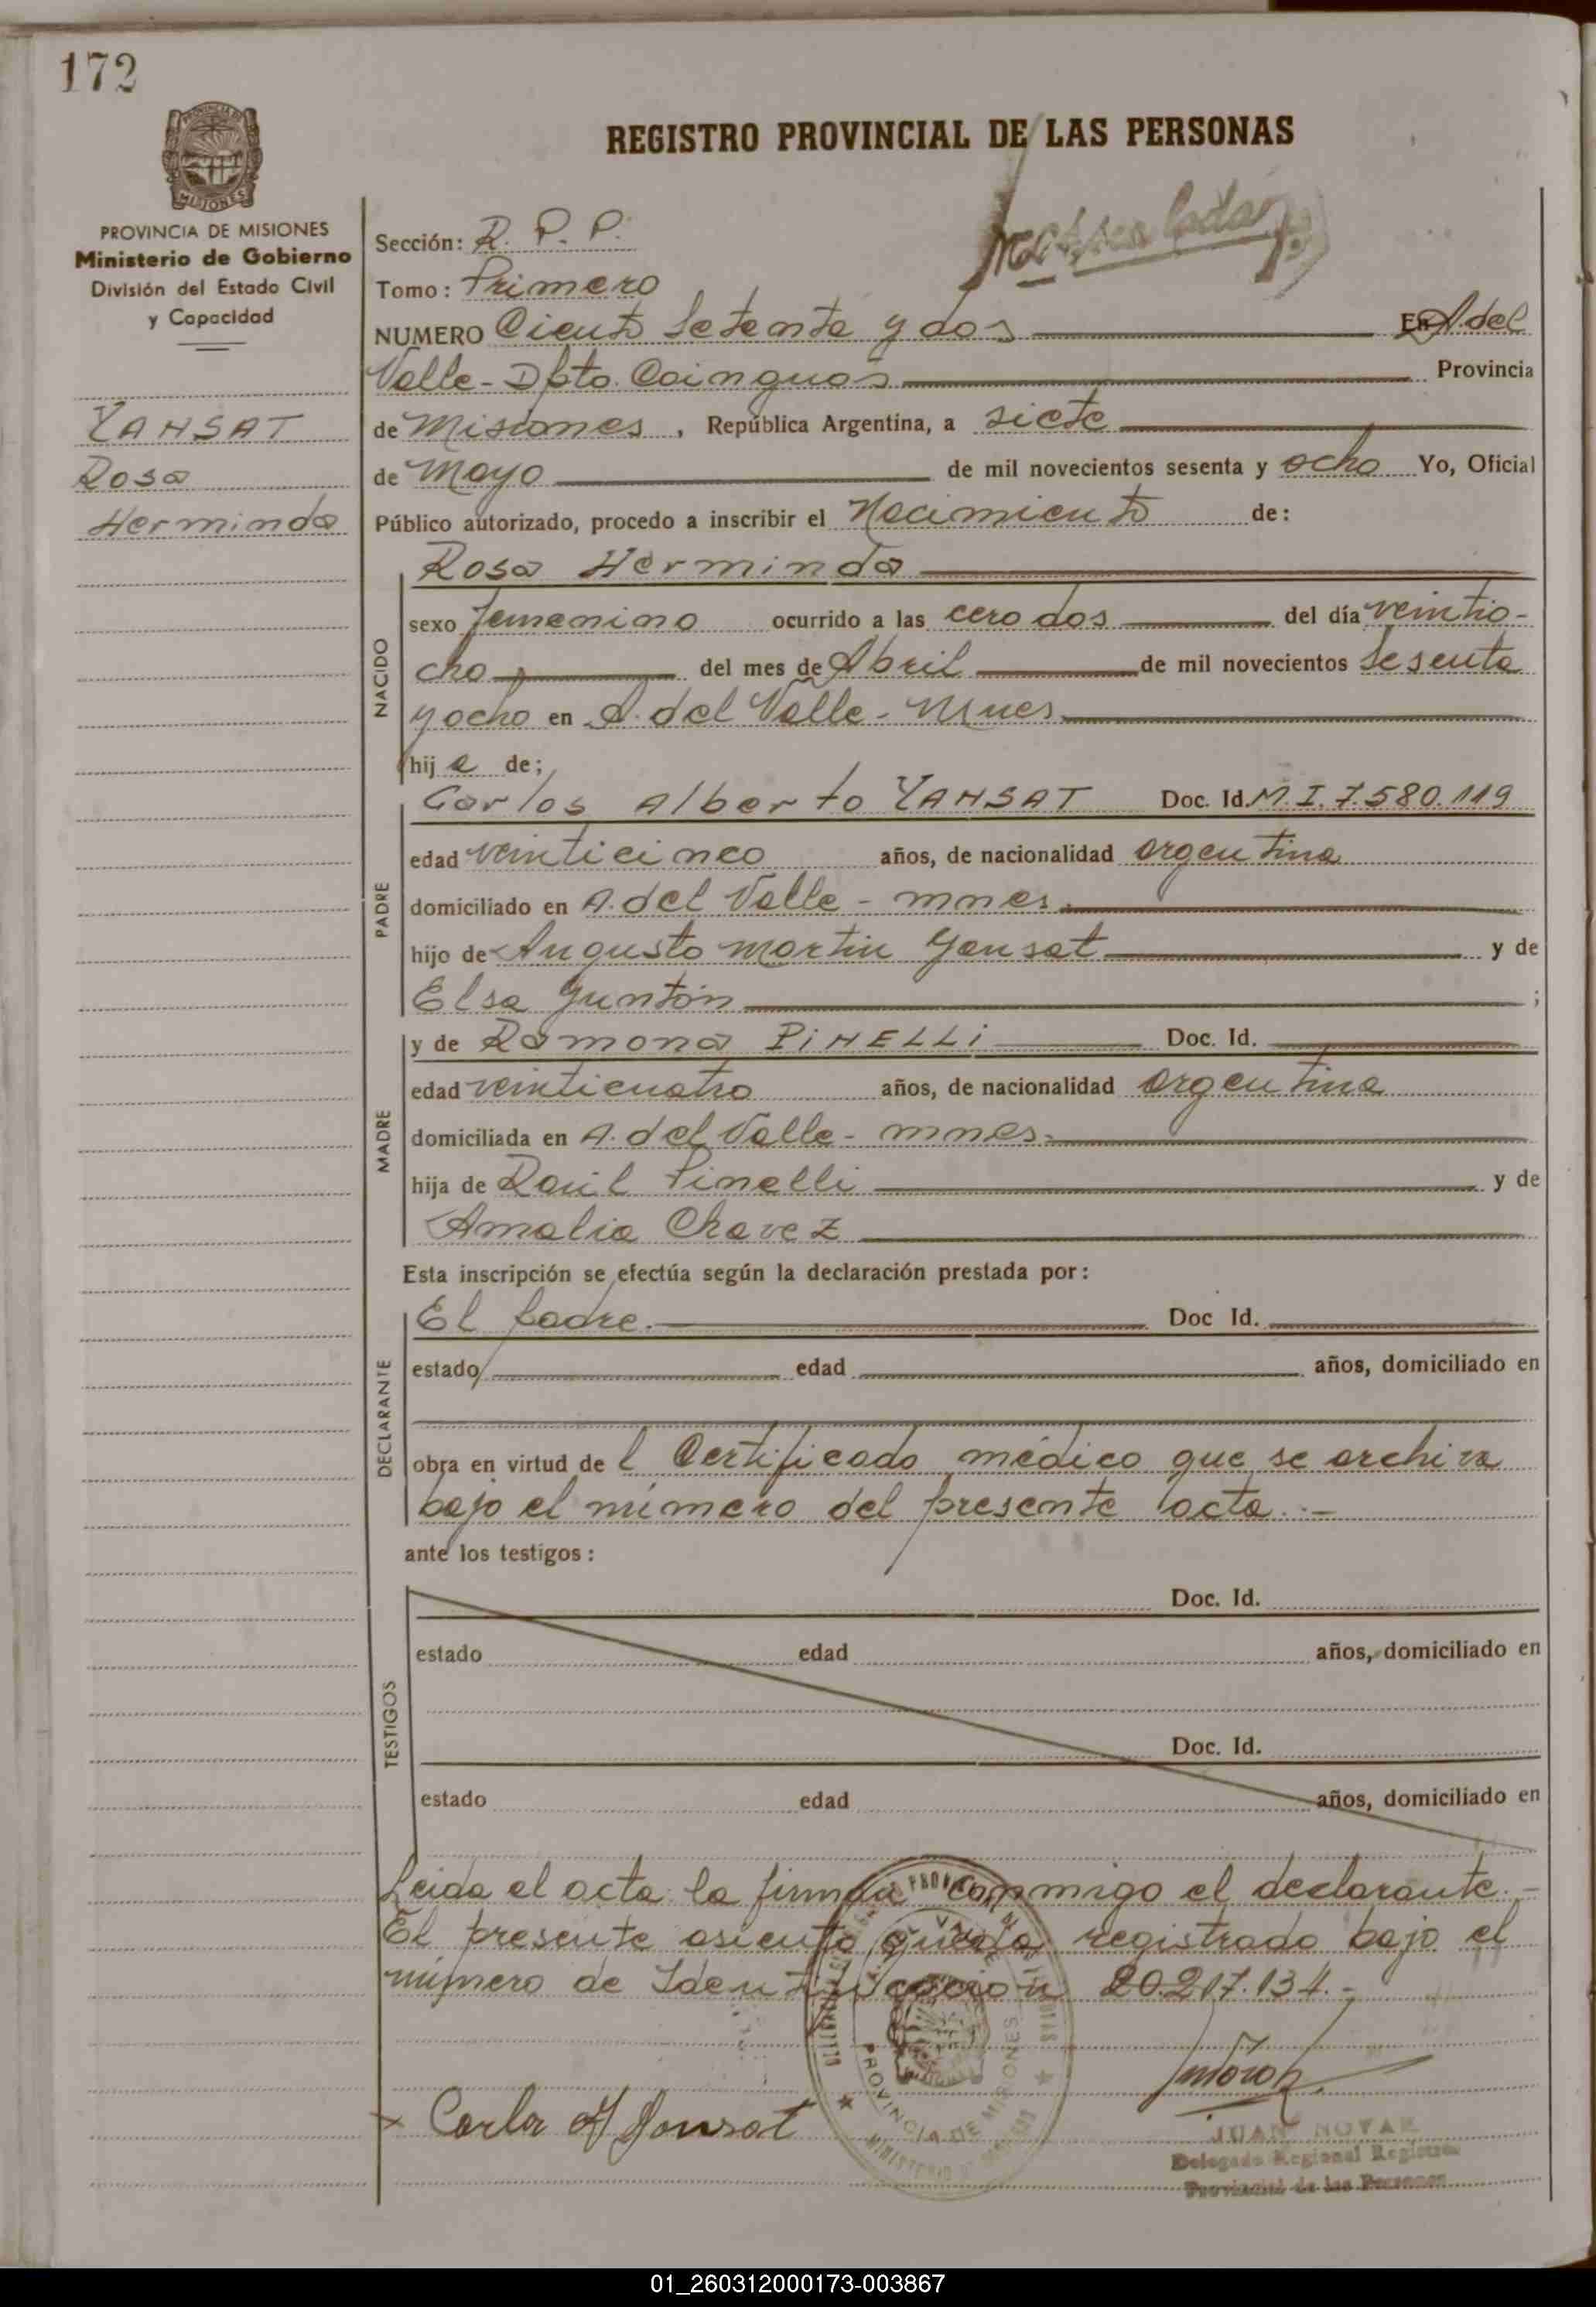 172
PROVINCIA DE MISIONES
Ministerio de Gobierno
División del Estado Civil
y Capacidad
YANSAT
Rosa
Herminda
REGISTRO PROVINCIAL DE LAS PERSONAS
Sección: R. P. P.
Tomo: Primero
NUMERO Ciento Setenta y dos En A. del
Valle - Dpto. Cainguas Provincia
de Misiones, República Argentina, a siete
de Mayo de mil novecientos sesenta y ocho Yo, Oficial
Público autorizado, procedo a inscribir el Nacimiento de:
NACIDO
Rosa Herminda
sexo femenino ocurrido a las cero dos del día veintio-
cho del mes de Abril de mil novecientos Sesenta
y ocho en A. del Valle - Mnes
hija de;
PADRE
Carlos Alberto YANSAT Doc. Id. M. I. 7.580.119
edad veinticinco años, de nacionalidad argentina
domiciliado en A. del Valle - mnes.
hijo de Augusto Martin Yansat y de
Elsa Guntón ;
MADRE
y de Ramona PINELLI Doc. Id.
edad veinticuatro años, de nacionalidad argentina
domiciliada en A. del Valle - mnes.
hija de Raúl Pinelli y de
Amalia Chavez
Esta inscripción se efectúa según la declaración prestada por:
DECLARANTE
El padre. Doc Id.
estado edad años, domiciliado en
obra en virtud de l Certificado médico que se archiva
bajo el número del presente acta.-
ante los testigos:
TESTIGOS
Doc. Id.
estado edad años, domiciliado en
Doc. Id.
estado edad años, domiciliado en
Leida el acta la firman conmigo el declarante.-
El presente asiento queda registrado bajo el
número de Identificación 20.217.134.-
PROVINCIA DE MISIONES
Carlos A Yansat
JUAN NOVAK
Delegado Regional Registro
Provincial de las Personas
01_260312000173-003867